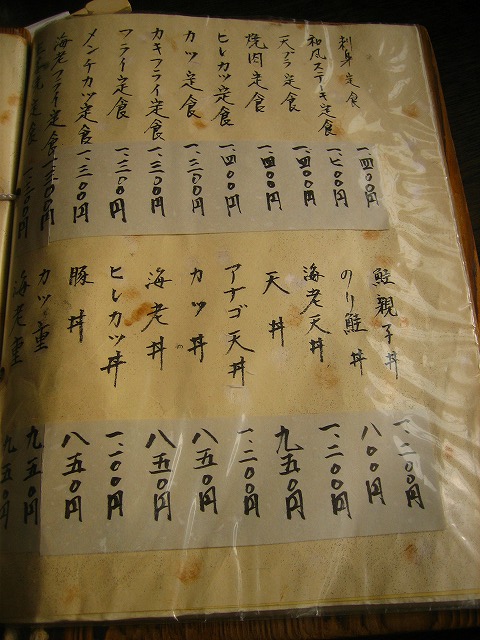 刺身定食 一.四〇〇円
和風ステーキ定食
天プラ定食 一.四〇〇円
焼肉定食 一.四〇〇円
ヒレカツ定食 一.四〇〇円
カツ定食
カキフライ定食 一.三〇〇円
フライ定食 一.三〇〇円
メンチカツ定食 一.三〇〇円
海老フライ定食 一.三〇〇円
定食 一.三〇〇円
鮭親子丼 一.二〇〇円
のり鮭丼 八〇〇円
海老天丼 一.二〇〇円
天丼 九五〇円
アナゴ天丼 一.二〇〇円
カツ丼 八五〇円
海老丼 八五〇円
ヒレカツ丼 一.一〇〇円
豚丼 八五〇円
カツ重 九五〇円
海老重 九五〇円